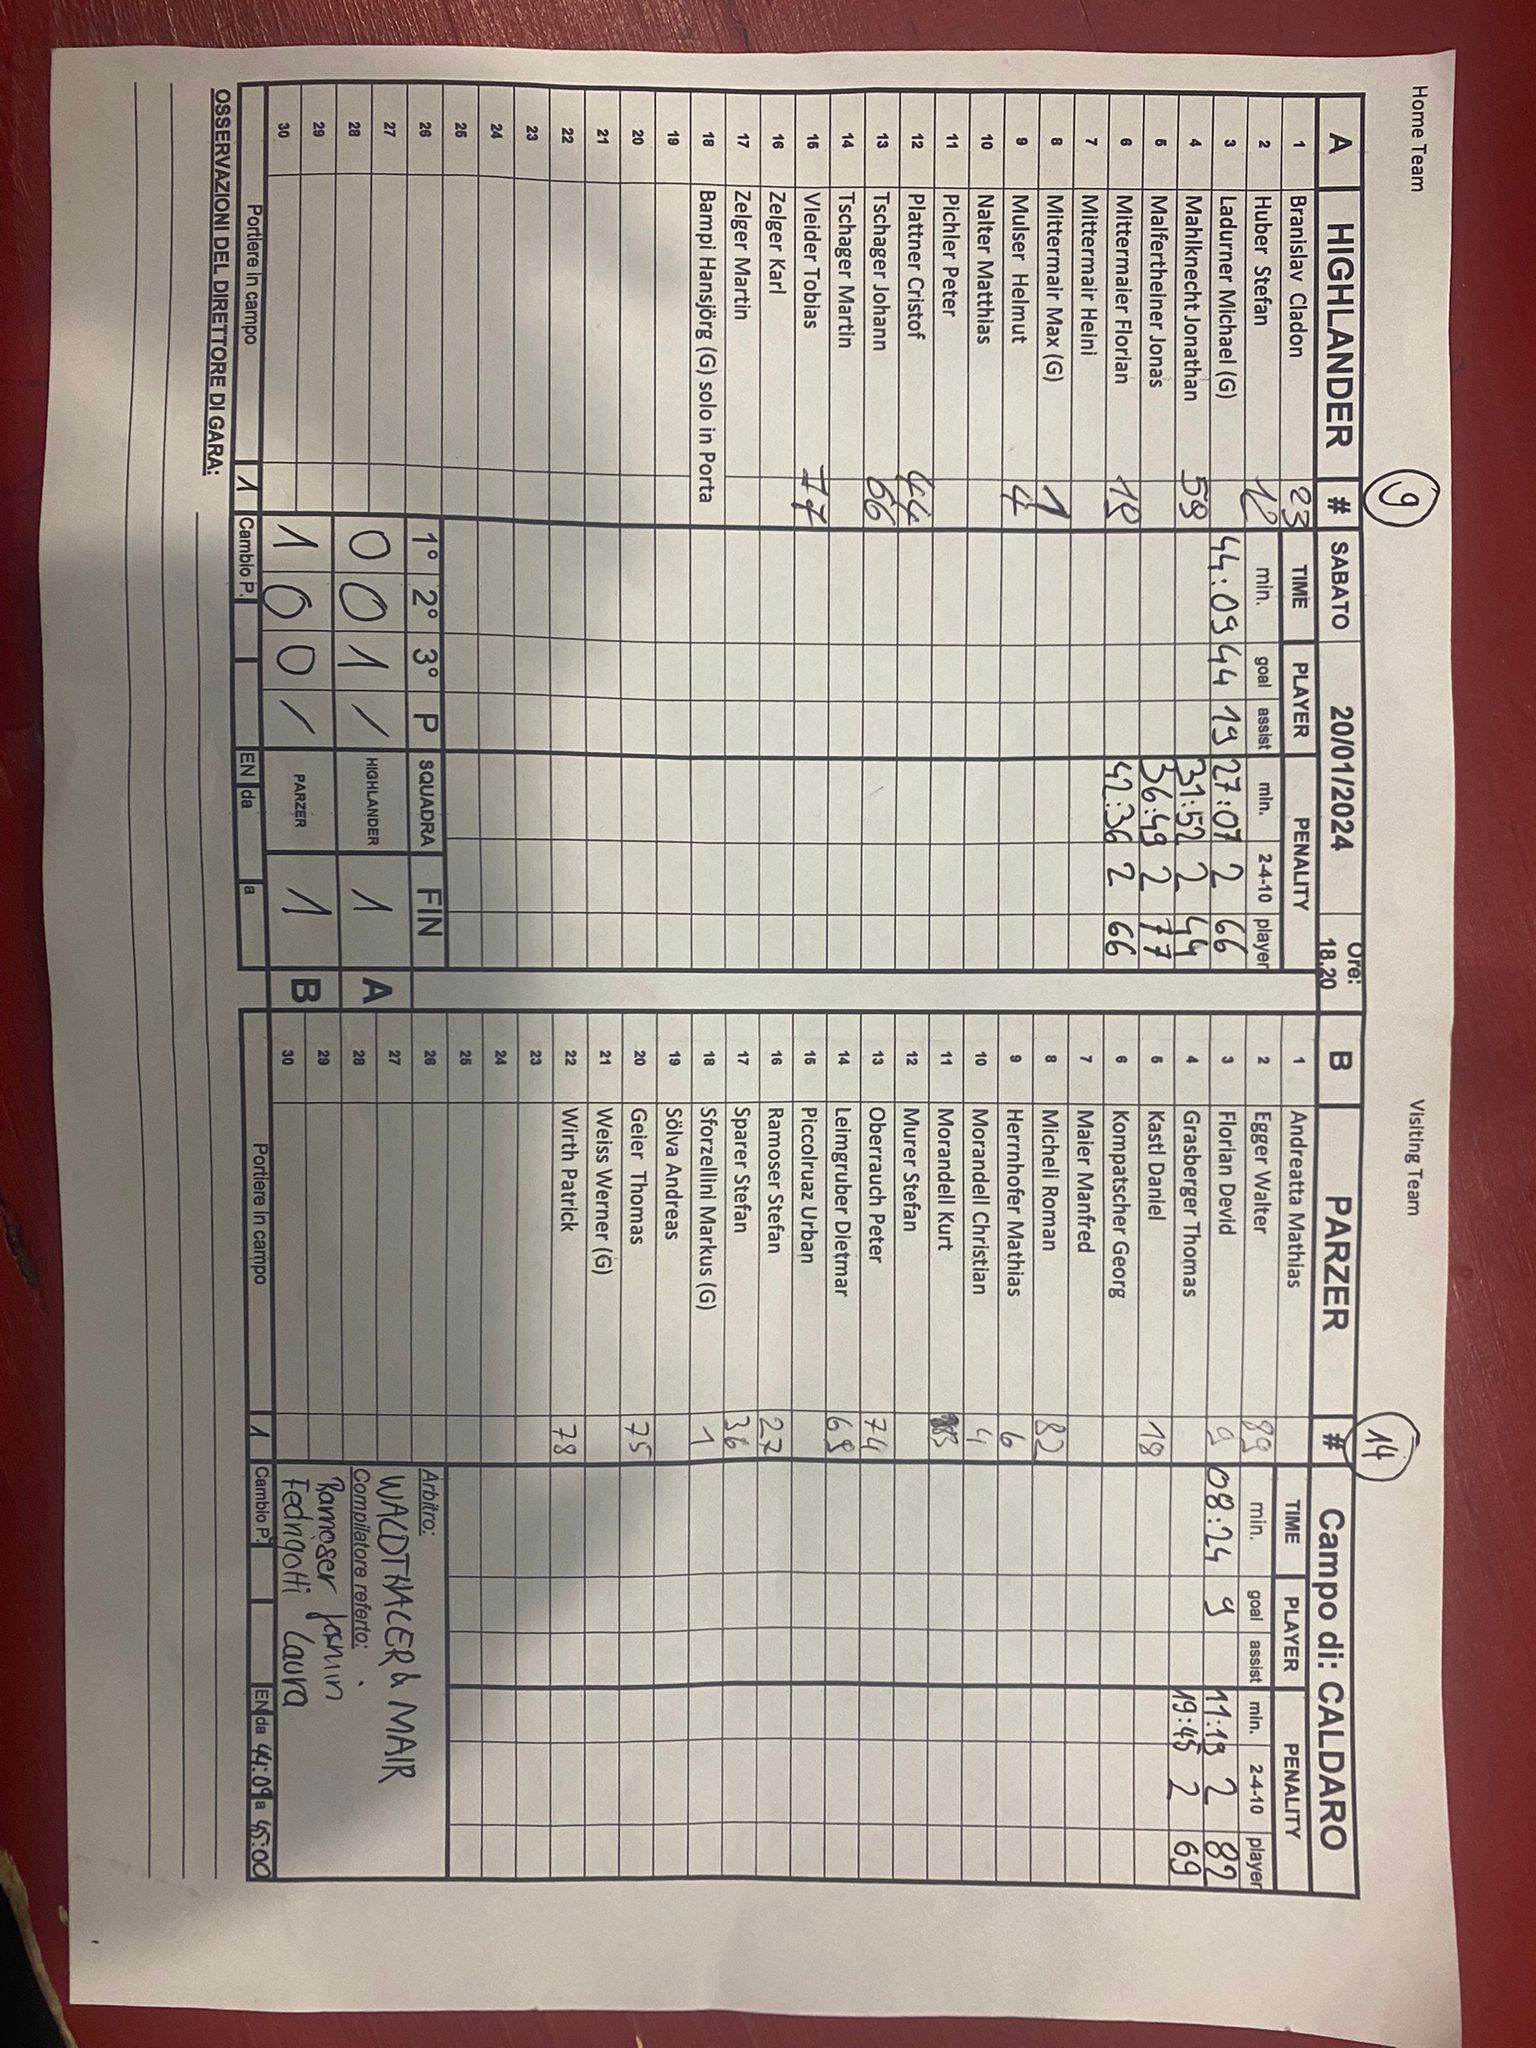 Home Team
9
Visiting Team
14
A HIGHLANDER # SABATO 20/01/2024 Ore: 18.20 B PARZER # Campo di: CALDARO
TIME PLAYER PENALITY
min. goal assist min. 2-4-10 player
TIME PLAYER PENALITY
min. goal assist min. 2-4-10 player
1 Branislav Cladon 23
2 Huber Stefan 12
3 Ladurner Michael (G) 44:09 44 19 27:07 2 66
4 Mahlknecht Jonathan 59 31:52 2 44
5 Malfertheiner Jonas 36:49 2 77
6 Mittermaier Florian 19 42:36 2 66
7 Mittermair Heini
8 Mittermair Max (G) 1
9 Mulser Helmut 4
10 Nalter Matthias
11 Pichler Peter
12 Plattner Cristof 44
13 Tschager Johann 66
14 Tschager Martin
15 Vleider Tobias 77
16 Zelger Karl
17 Zelger Martin
18 Bampi Hansjörg (G) solo in Porta
19
20
21
22
23
24
25
26
27
28
29
30
1° 2° 3° P SQUADRA FIN
0 0 1 / HIGHLANDER 1 A
1 0 0 / PARZER 1 B
Portiere in campo 1 Cambio P. EN da a
1 Andreatta Mathias
2 Egger Walter 89
3 Florian Devid 9 08:24 9 11:19 2 82
4 Grasberger Thomas 19:45 2 69
5 Kastl Daniel 18
6 Kompatscher Georg
7 Maier Manfred
8 Micheli Roman 82
9 Herrnhofer Mathias 6
10 Morandell Christian 4
11 Morandell Kurt
12 Murer Stefan
13 Oberrauch Peter 74
14 Leimgruber Dietmar 69
15 Piccolruaz Urban
16 Ramoser Stefan 27
17 Sparer Stefan 36
18 Sforzellini Markus (G) 1
19 Sölva Andreas
20 Geier Thomas 75
21 Weiss Werner (G)
22 Wirth Patrick 78
23
24
25
26
27
28
29
30
Arbitro:
WALDTHALER & MAIR
Compilatore referto:
Ramoser Jasmin
Fedrigotti Laura
Portiere in campo 1 Cambio P. EN da 44:09 a 45:00
OSSERVAZIONI DEL DIRETTORE DI GARA: